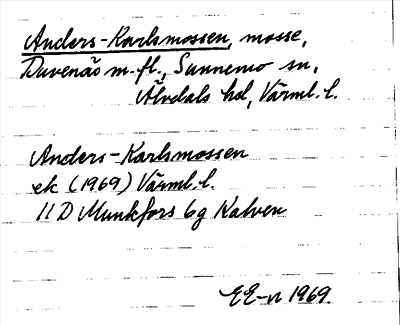 Anders-Karlsmossen, mosse,
Duvenäs m.fl., Sunnemo sn,
Älvdals hd, Värml. l.
Anders-Karlsmossen
ek (1969) Värml. l.
11 D Munkfors 6g Kalven
EE-n 1969